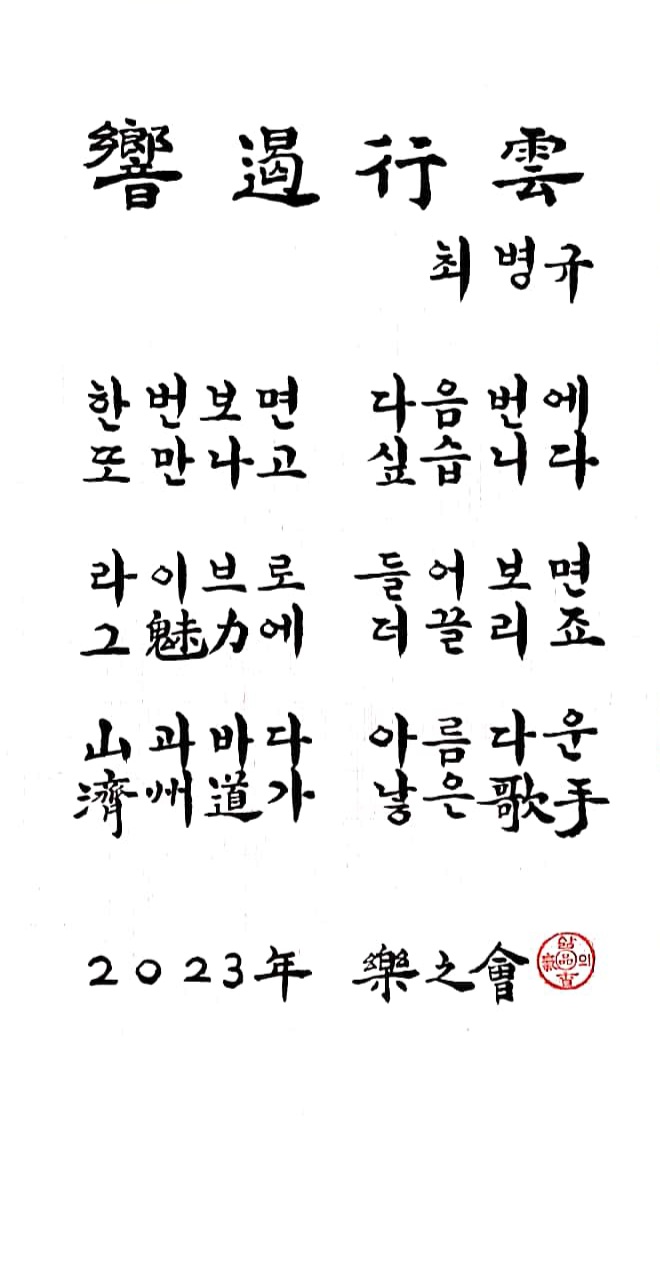 響遏行雲
최병규
한번보면 다음번에
또만나고 싶습니다
라이브로 들어보면
그魅力에 더끌리죠
山과바다 아름다운
濟州道가 낳은歌手
2023年 樂之會